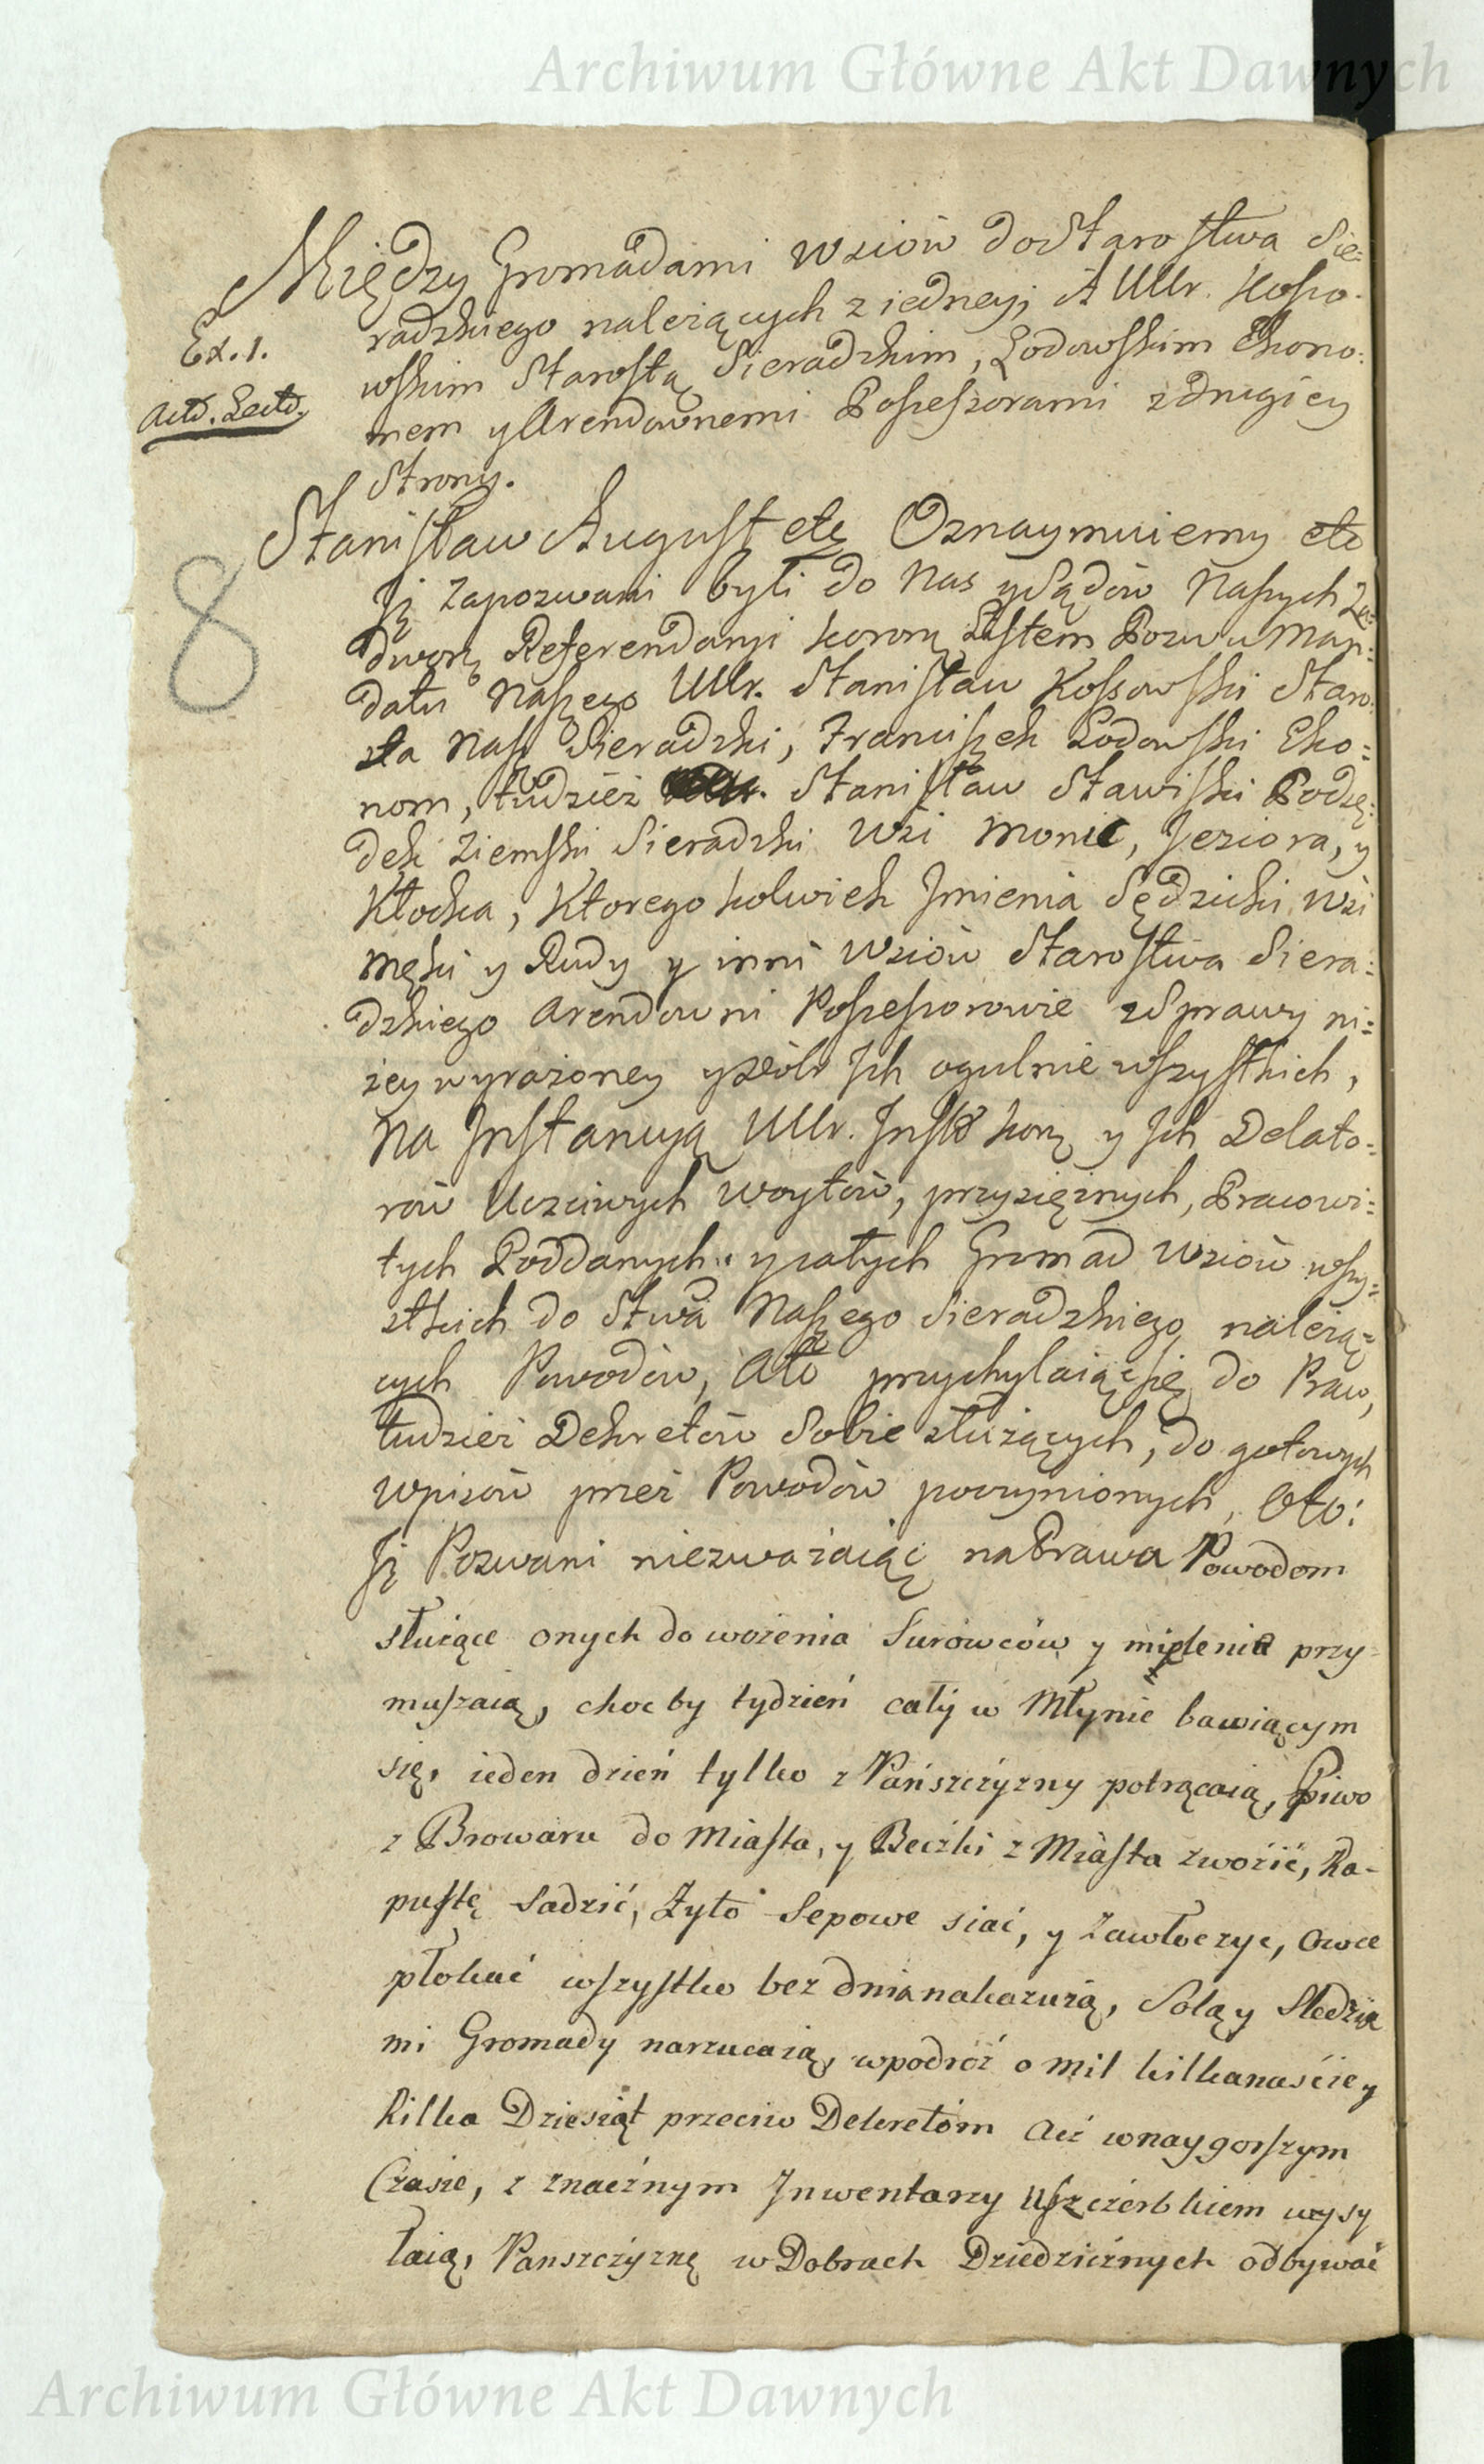 Archiwum Główne Akt Dawnych
Między Gromadami Wsiów do Starostwa Sie=
radzkiego należących z iedney, A UUr. Kosso-
wskim Starostą Sieradzkim, Lodowskim Ekono:
mem y Arendownemi Possessorami z drugiey
Strony.
Ex. 1.
Actd. Lectd.
8
Stanisław August etc Oznaymuiemy etc
Jż Zapozwani byli do Nas y Sądów Naszych Za=
dworn Referendaryi koronn Listem Pozwu Man=
datu Naszego UUr. Stanisław Kossowski Staro:
sta Nasz Sieradzki, Franciszek Lodowski Eko=
nom, tudzież Stanisław Stawiski Podsę=
dek Ziemski Sieradzki Wsi Monic, Jeziora, y
Kłocka, Ktorego kolwiek Jmienia Sędzicki Wsi
Męki y Rudy y inni Wsiów Starostwa Siera=
dzkiego Arendowni Possessorowie z Sprawy ni=
żey wyrażoney y źródł Jch ogulnie wszystkich,
Na Jnstancyą UUr. Jnsty kore y Jch Delato=
rów Uczciwych Woytów, przysiężnych, Pracowi=
tych Poddanych y całych Gromad Wsiów wszy=
stkich do Stwa Naszego Sieradzkiego należą=
cych Powodów, Ato przychylaiąc się do Praw,
tudzież Dekretów Sobie służących, do gotowych
wpisów przez Powodów poczynionych, Oto:
Jż Pozwani niezważaiąc na Prawa Powodom
służące onych do wożenia Surowców y mielenia przy=
muszaią, choć by tydzień cały w Młynie bawiącym
się, ieden dzień tylko z Pańszczyzny potrącaią, Piwo
z Browaru do Miasta, y Beczki z Miasta zwozić, Ka-
pustę Sadzić, Żyto Sepowe siać, y Zawłoczyć, Owce
płokać wszystko bez dnia nakazuią, Solą y Sledzia
mi Gromady narzucaią, w podróż o mil kilkanaście y
kilka Dziesiąt przeciw Dekretóm Ać w naygorszym
Czasie, z znacznym Jnwentarzy Uszczerbkiem wysy
łaią, Panszczyznę w Dobrach Dziedzicznych odbywać
Archiwum Główne Akt Dawnych